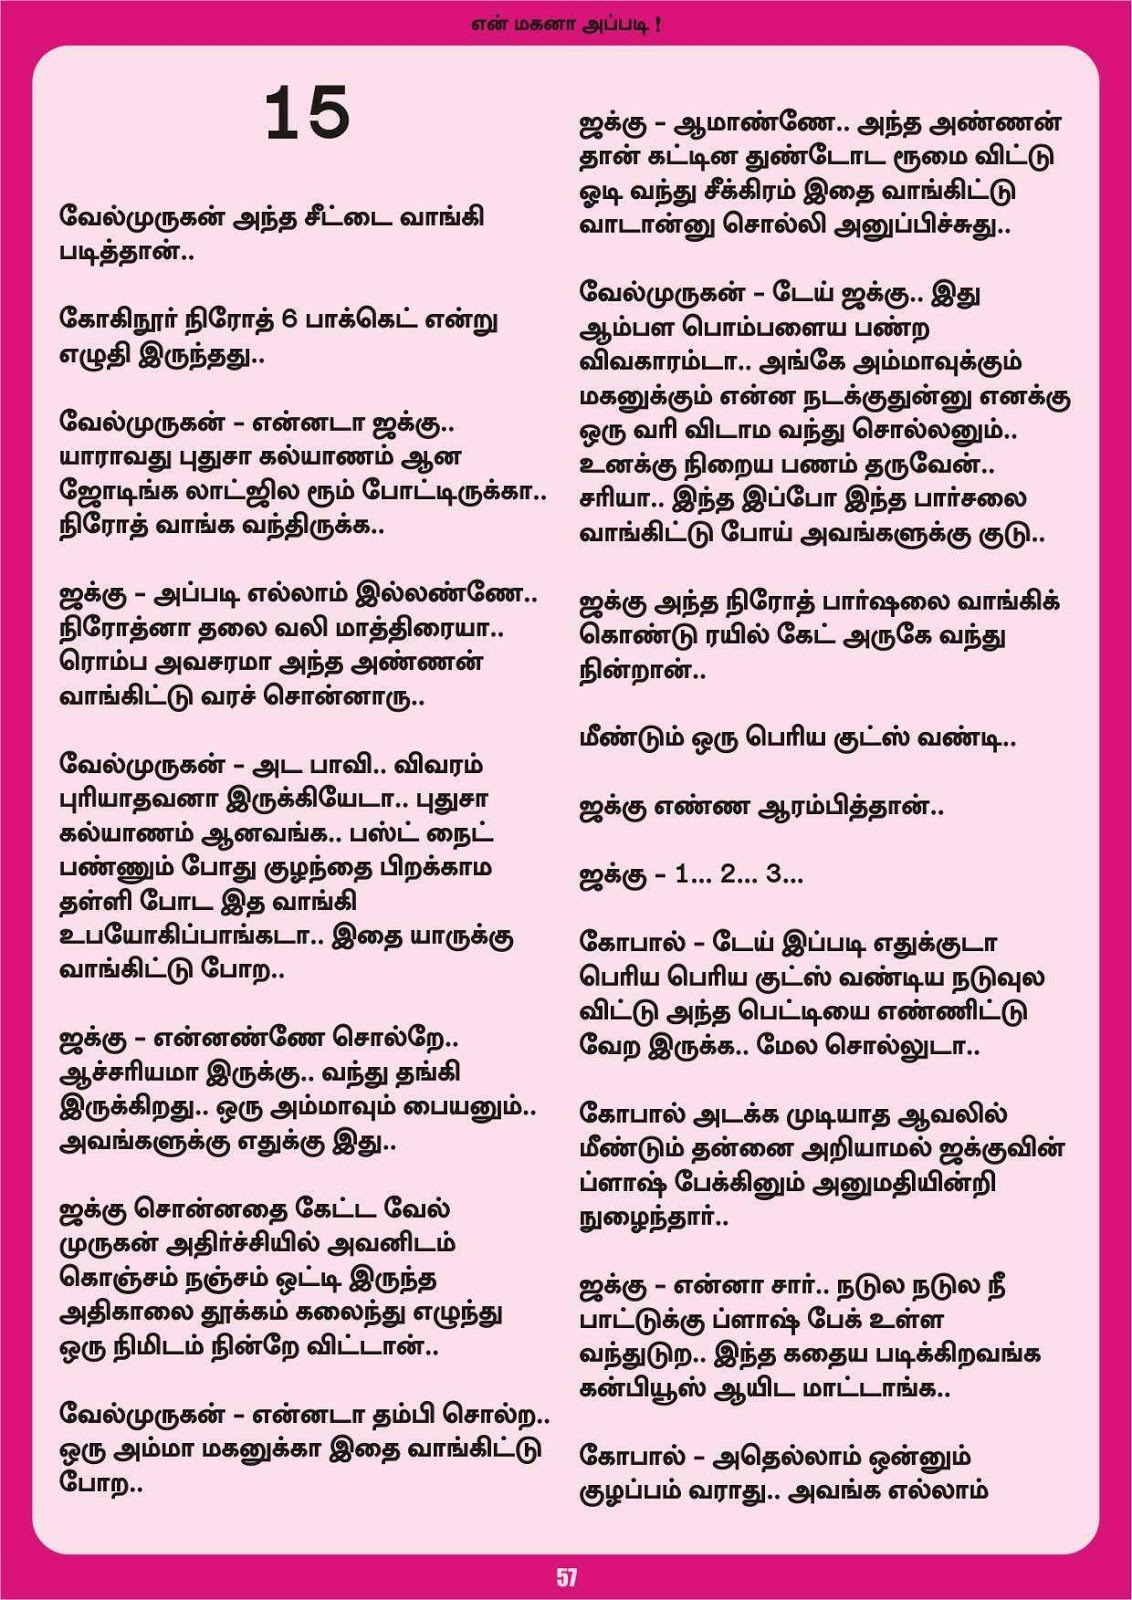 என் மகனா அப்படி !
15
வேல்முருகன் அந்த சீட்டை வாங்கி
படித்தான்..
கோகிநூர் நிரோத் 6 பாக்கெட் என்று
எழுதி இருந்தது..
வேல்முருகன் – என்னடா ஜக்கு..
யாராவது புதுசா கல்யாணம் ஆன
ஜோடிங்க லாட்ஜில ரூம் போட்டிருக்கா..
நிரோத் வாங்க வந்திருக்க..
ஜக்கு – அப்படி எல்லாம் இல்லண்ணே..
நிரோத்னா தலை வலி மாத்திரையா..
ரொம்ப அவசரமா அந்த அண்ணன்
வாங்கிட்டு வரச் சொன்னாரு..
வேல்முருகன் – அட பாவி.. விவரம்
புரியாதவனா இருக்கியேடா.. புதுசா
கல்யாணம் ஆனவங்க.. பஸ்ட் நைட்
பண்ணும் போது குழந்தை பிறக்காம
தள்ளி போட இத வாங்கி
உபயோகிப்பாங்கடா.. இதை யாருக்கு
வாங்கிட்டு போற..
ஜக்கு – என்னண்ணே சொல்றே..
ஆச்சரியமா இருக்கு.. வந்து தங்கி
இருக்கிறது.. ஒரு அம்மாவும் பையனும்..
அவங்களுக்கு எதுக்கு இது..
ஜக்கு சொன்னதை கேட்ட வேல்
முருகன் அதிர்ச்சியில் அவனிடம்
கொஞ்சம் நஞ்சம் ஒட்டி இருந்த
அதிகாலை தூக்கம் கலைந்து எழுந்து
ஒரு நிமிடம் நின்றே விட்டான்..
வேல்முருகன் – என்னடா தம்பி சொல்ற..
ஒரு அம்மா மகனுக்கா இதை வாங்கிட்டு
போற..
ஜக்கு – ஆமாண்ணே.. அந்த அண்ணன்
தான் கட்டின துண்டோட ரூமை விட்டு
ஓடி வந்து சீக்கிரம் இதை வாங்கிட்டு
வாடான்னு சொல்லி அனுப்பிச்சுது..
வேல்முருகன் – டேய் ஜக்கு.. இது
ஆம்பள பொம்பளைய பண்ற
விவகாரம்டா.. அங்கே அம்மாவுக்கும்
மகனுக்கும் என்ன நடக்குதுன்னு எனக்கு
ஒரு வரி விடாம வந்து சொல்லனும்..
உனக்கு நிறைய பணம் தருவேன்..
சரியா.. இந்த இப்போ இந்த பார்சலை
வாங்கிட்டு போய் அவங்களுக்கு குடு..
ஜக்கு அந்த நிரோத் பார்ஷலை வாங்கிக்
கொண்டு ரயில் கேட் அருகே வந்து
நின்றான்..
மீண்டும் ஒரு பெரிய குட்ஸ் வண்டி..
ஜக்கு எண்ண ஆரம்பித்தான்..
ஜக்கு – 1... 2... 3...
கோபால் – டேய் இப்படி எதுக்குடா
பெரிய பெரிய குட்ஸ் வண்டிய நடுவுல
விட்டு அந்த பெட்டியை எண்ணிட்டு
வேற இருக்க.. மேல சொல்லுடா..
கோபால் அடக்க முடியாத ஆவலில்
மீண்டும் தன்னை அறியாமல் ஜக்குவின்
ப்ளாஷ் பேக்கினும் அனுமதியின்றி
நுழைந்தார்..
ஜக்கு – என்னா சார்.. நடுல நடுல நீ
பாட்டுக்கு ப்ளாஷ் பேக் உள்ள
வந்துடுற.. இந்த கதைய படிக்கிறவங்க
கன்பியூஸ் ஆயிட மாட்டாங்க..
கோபால் – அதெல்லாம் ஒன்னும்
குழப்பம் வராது.. அவங்க எல்லாம்
57